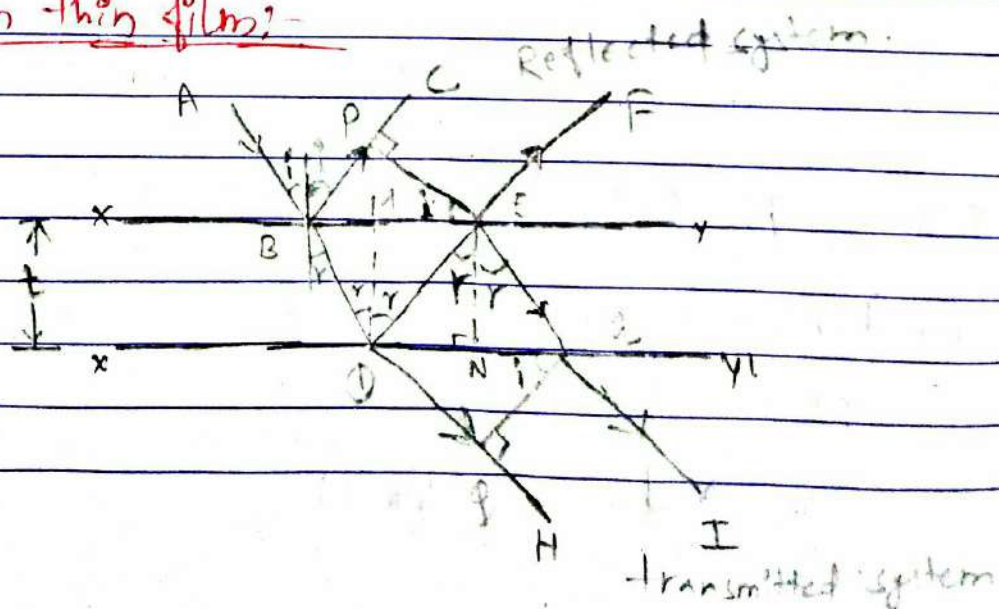 n thin film:-
Reflected system.
A
P
C
F
i
i
x
B
M
i
E
y
r
t
r
r
r
r
x
D
N
i
y1
Q
H
I
transmitted system